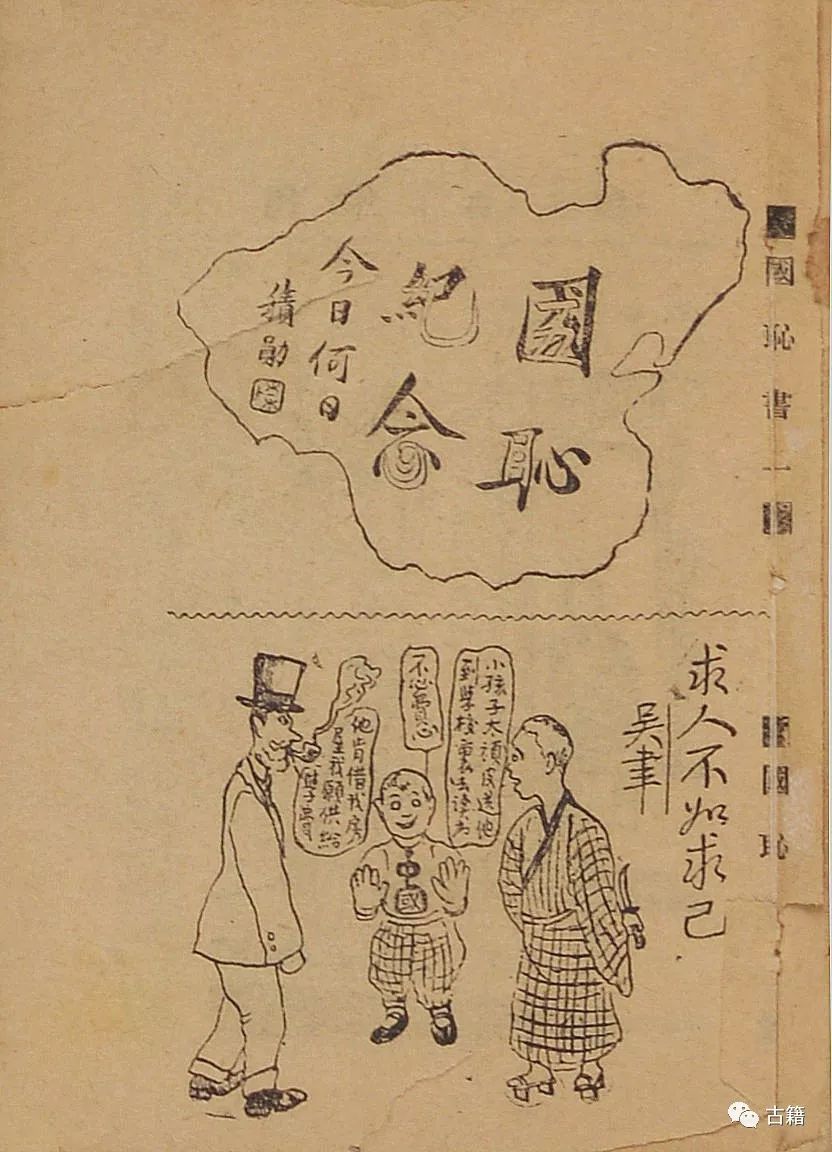 國恥書一
國恥
國恥
紀念
今日何日
求人不如求己
吳
小孩子太頑皮送他
到學校裏去讀书
不必費心
他肯借我房
屋我願供給
費
中國
古籍